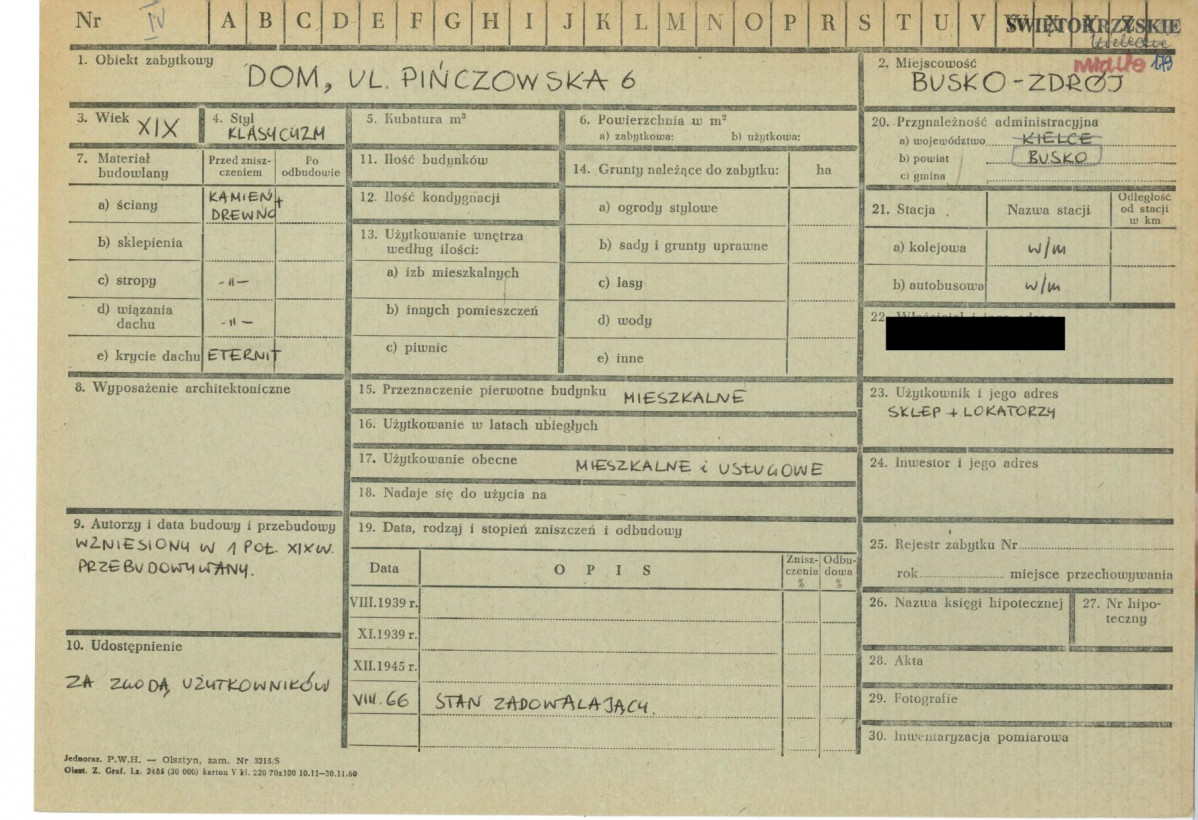 Nr IV A B C D E F G H I J K L M N O P R S T U V W X Y Z
ŚWIĘTOKRZYSKIE
miasto 179
1. Obiekt zabytkowy
DOM, UL. PIŃCZOWSKA 6
2. Miejscowość
BUSKO-ZDRÓJ
3. Wiek XIX
4. Styl
KLASYCYZM
5. Kubatura m³
6. Powierzchnia w m²
a) zabytkowa: b) użytkowa:
7. Materiał budowlany
Przed zniszczeniem
Po odbudowie
a) ściany KAMIEŃ + DREWNO
b) sklepienia
c) stropy -"-
d) wiązania dachu -"-
e) krycie dachu ETERNIT
8. Wyposażenie architektoniczne
9. Autorzy i data budowy i przebudowy
WZNIESIONY W 1 POŁ. XIX W.
PRZEBUDOWYWANY.
10. Udostępnienie
ZA ZGODĄ UŻYTKOWNIKÓW
11. Ilość budynków
12. Ilość kondygnacji
13. Użytkowanie wnętrza
według ilości:
a) izb mieszkalnych
b) innych pomieszczeń
c) piwnic
14. Grunty należące do zabytku: ha
a) ogrody stylowe
b) sady i grunty uprawne
c) lasy
d) wody
e) inne
15. Przeznaczenie pierwotne budynku MIESZKALNE
16. Użytkowanie w latach ubiegłych
17. Użytkowanie obecne MIESZKALNE i USŁUGOWE
18. Nadaje się do użycia na
19. Data, rodzaj i stopień zniszczeń i odbudowy
Data OPIS Zniszczenia % Odbudowa %
VIII.1939 r.
XI.1939 r.
XII.1945 r.
VIII. 66 STAN ZADOWALAJĄCY.
20. Przynależność administracyjna
a) województwo KIELCE
b) powiat BUSKO
c) gmina
21. Stacja Nazwa stacji Odległość od stacji w km
a) kolejowa w/m
b) autobusowa w/m
22.
23. Użytkownik i jego adres
SKLEP + LOKATORZY
24. Inwestor i jego adres
25. Rejestr zabytku Nr
rok miejsce przechowywania
26. Nazwa księgi hipotecznej
27. Nr hipoteczny
28. Akta
29. Fotografie
30. Inwentaryzacja pomiarowa
Jednoraz. P.W.H. — Olsztyn, zam. Nr 3215/S
Olszt. Z. Graf. Lz. 2485 (30 000) karton V kl. 220 70x100 10.11—30.11.60